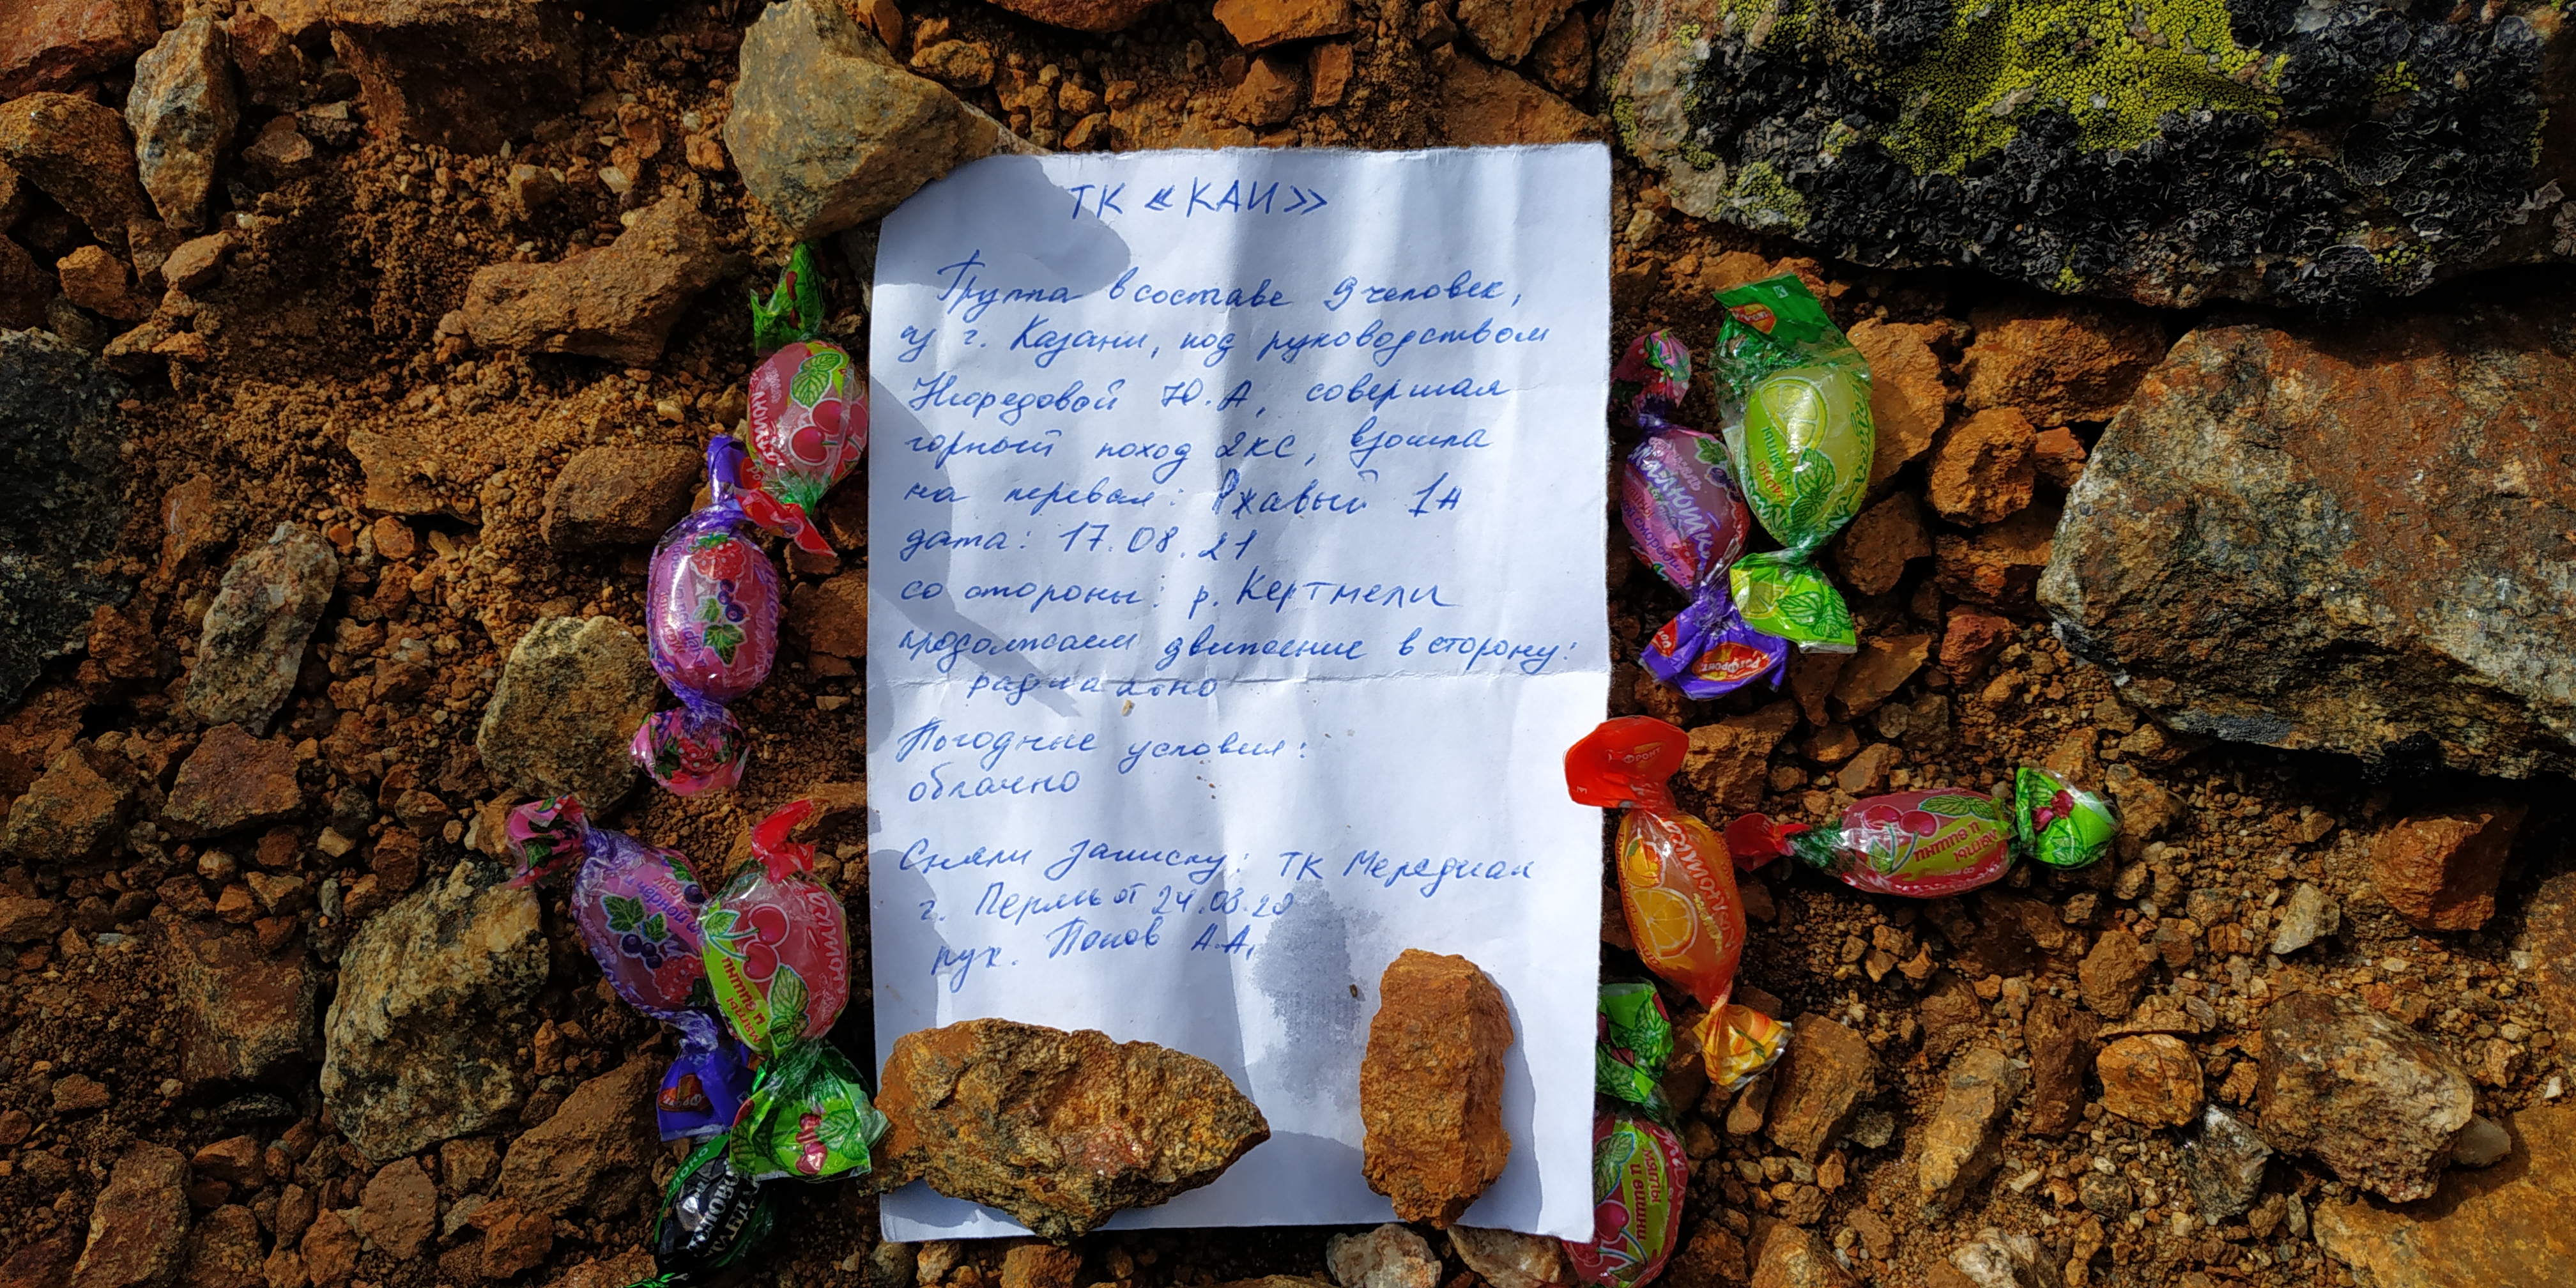 ТК «КАИ»
Группа в составе 9 человек,
из г. Казани, под руководством
Ю.А, совершая
горный поход 2КС, взошла
на перевал: Ржавый 1Н
дата: 17.08.21
со стороны: р. Кертмели
продолжаем движение в сторону:
радиально
Погодные условия:
облачно
Сняли записку: ТК Мередиан
г. Пермь от 24.08.20
рук. Попов А.А.
РотФронт
мяты и вишни
мяты и вишни
мяты и вишни